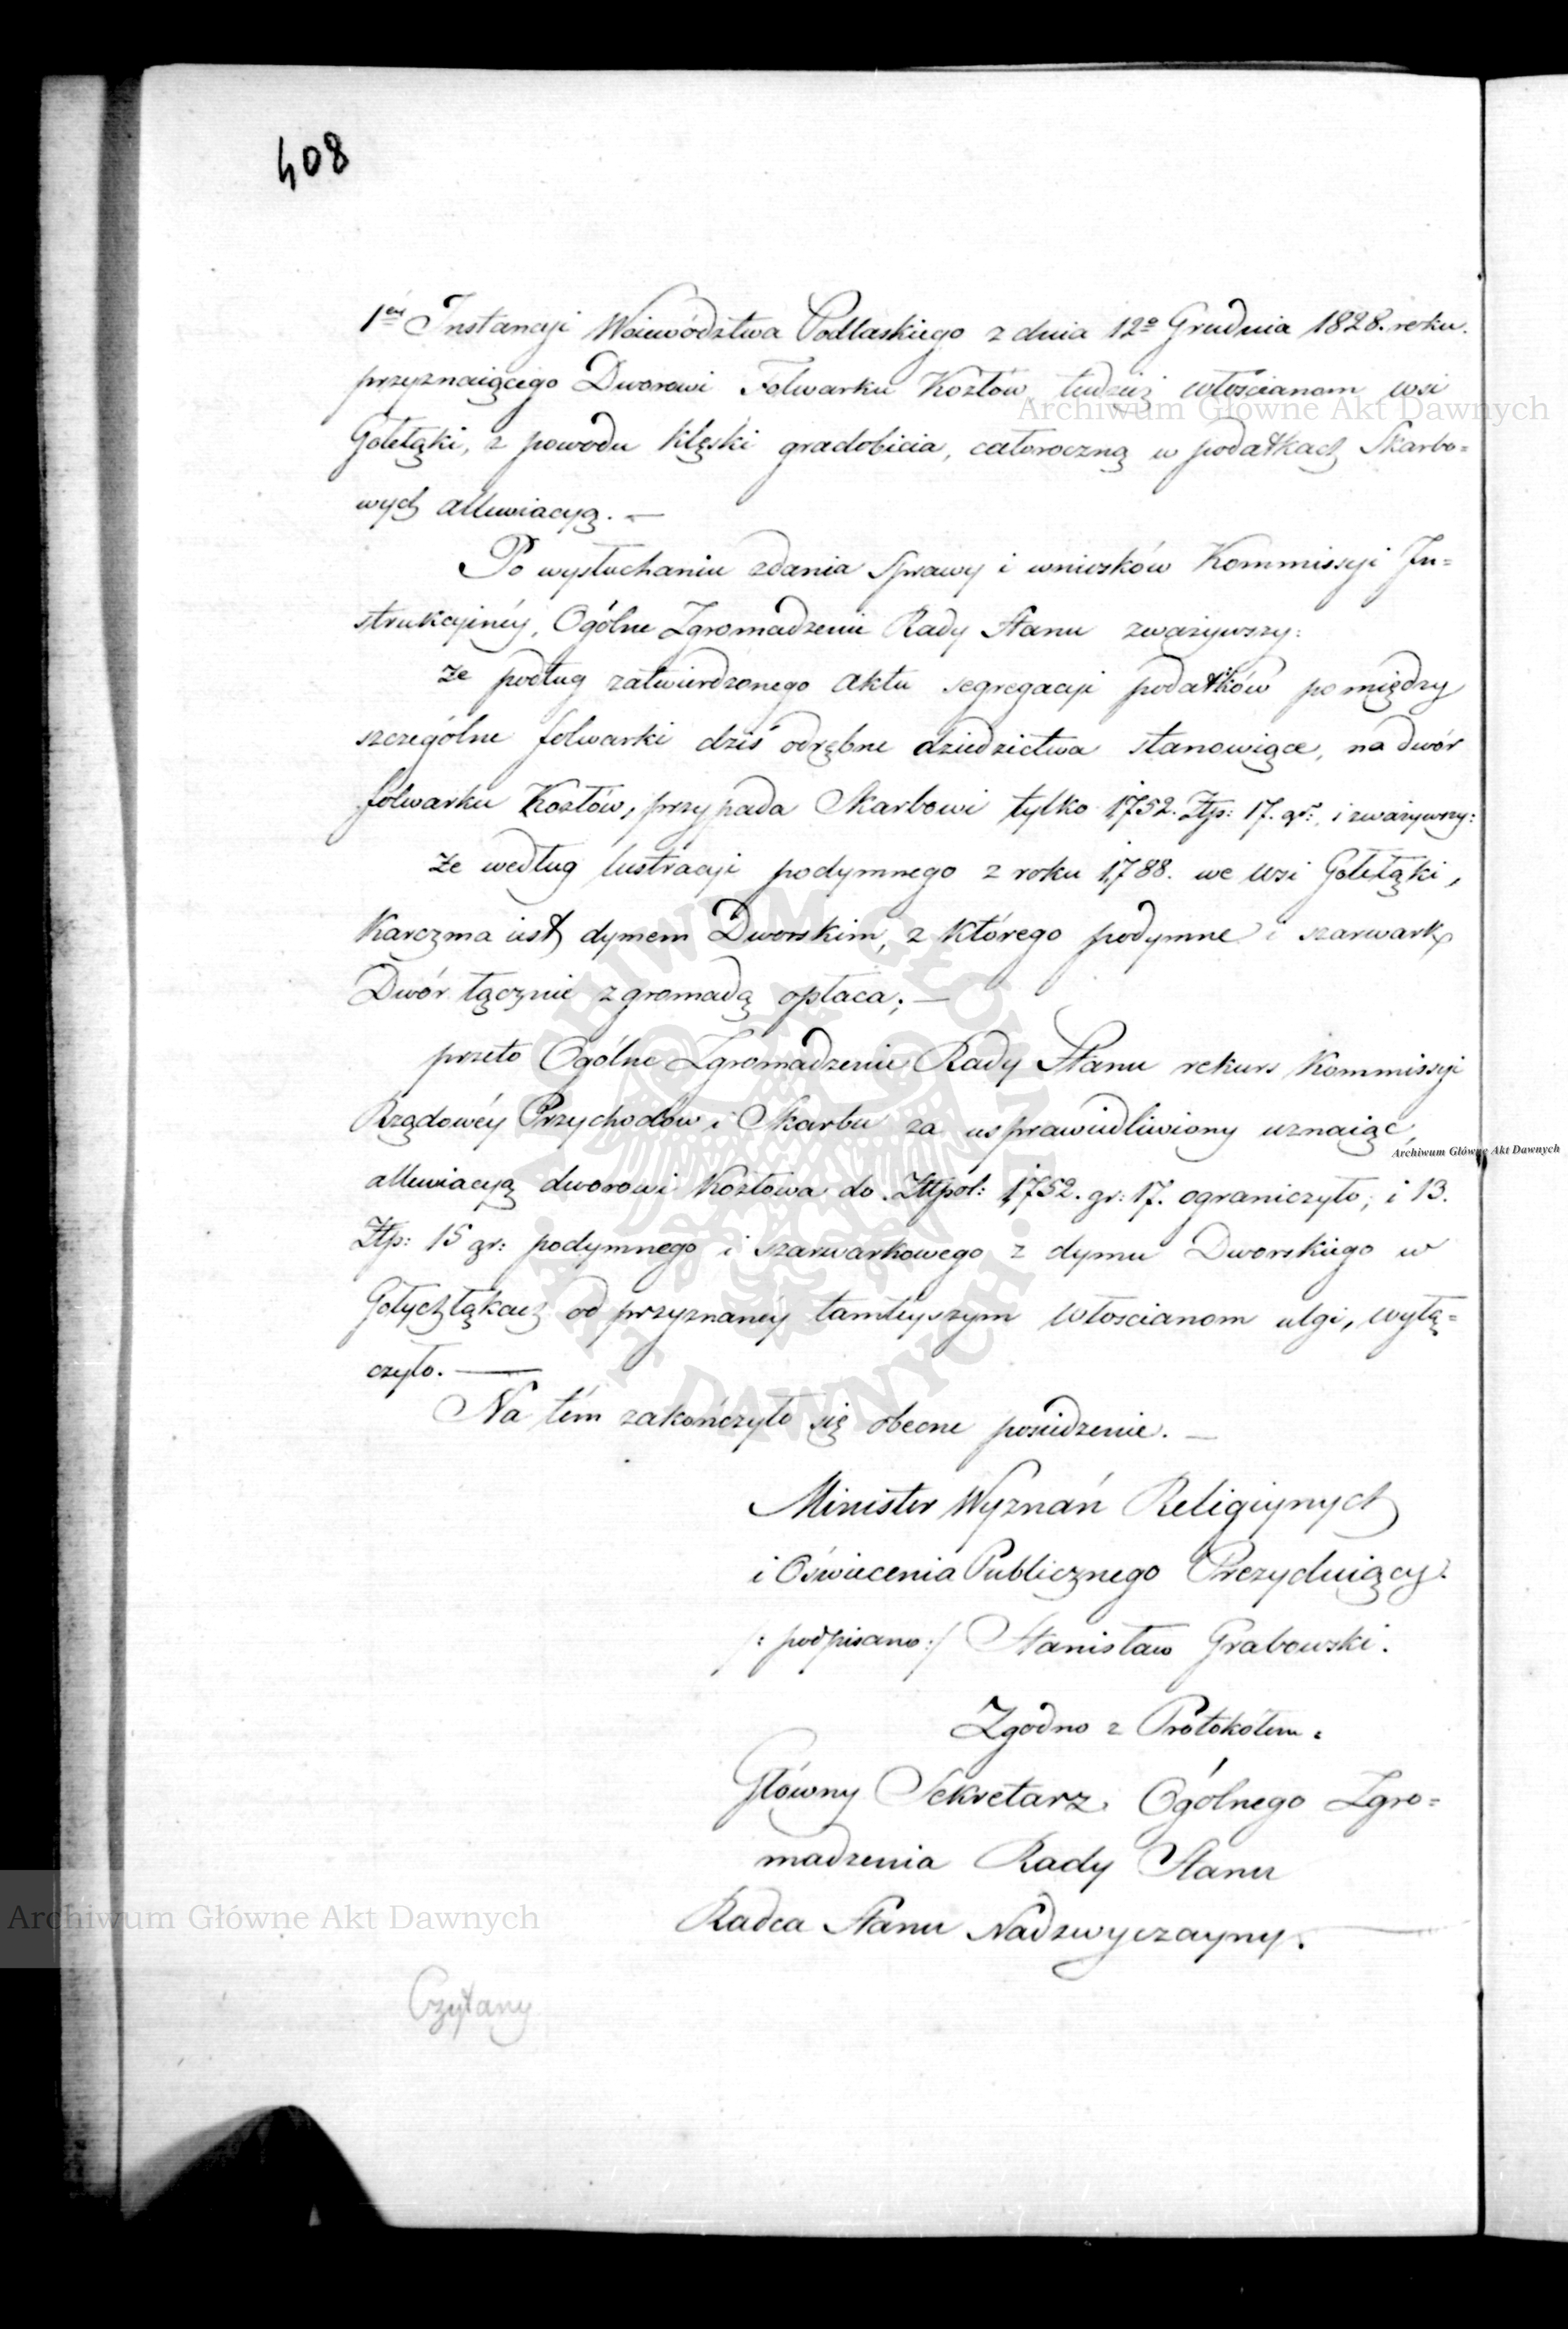 408
1éy Instancyi Woiewództwa Podlaskiego z dnia 12º Grudnia 1828. roku.
przyznaiącego Dworowi Folwarku Kozłów, tudzież włościanom wsi
Gołełąki, z powodu klęski gradobicia, całoroczną w podatkach Skarbo=
wych allewiacyą. —
Po wysłuchaniu zdania Sprawy i wniosków Kommissyi In=
strukcyinéy, Ogólne Zgromadzenie Rady Stanu zważywszy:
że podług zatwierdzonego aktu segregacyi podatków pomiędzy
szczególne folwarki dziś odrębne dziedzictwa stanowiące, na dwór
folwarku Kozłów, przypada Skarbowi tylko 1752. Złp: 17. gr:, i zważywszy:
że według lustracyi podymnego z roku 1788. we wsi Gołełąki,
Karczma iest dymem Dworskim, z którego podymne i szarwark
Dwór łącznie z gromadą opłaca; —
przeto Ogólne Zgromadzenie Rady Stanu rekurs Kommissyi
Rządowéy Przychodów i Skarbu za usprawiedliwiony uznaiąc,
allewiacyą dworowi Kozłowa do Złtpol: 1752. gr: 17. ograniczyło; i 13.
Złp: 15 gr: podymnego i szarwarkowego z dymu Dworskiego w
Gołychłąkach od przyznanéy tamteyszym Włoscianom ulgi, wyłą=
czyło. —
Na tém zakończyło się obecne posiedzenie. —
Minister Wyznań Religiynych
i Oświecenia Publicznego Prezyduiący.
/: podpisano :/ Stanisław Grabowski.
Zgodno z Protokołem:
Główny Sekretarz Ogólnego Zgro=
madzenia Rady Stanu
Radca Stanu Nadzwyczayny.
Czytany
Archiwum Główne Akt Dawnych
Archiwum Główne Akt Dawnych
Archiwum Główne Akt Dawnych
ARCHIWUM GŁÓWNE AKT DAWNYCH